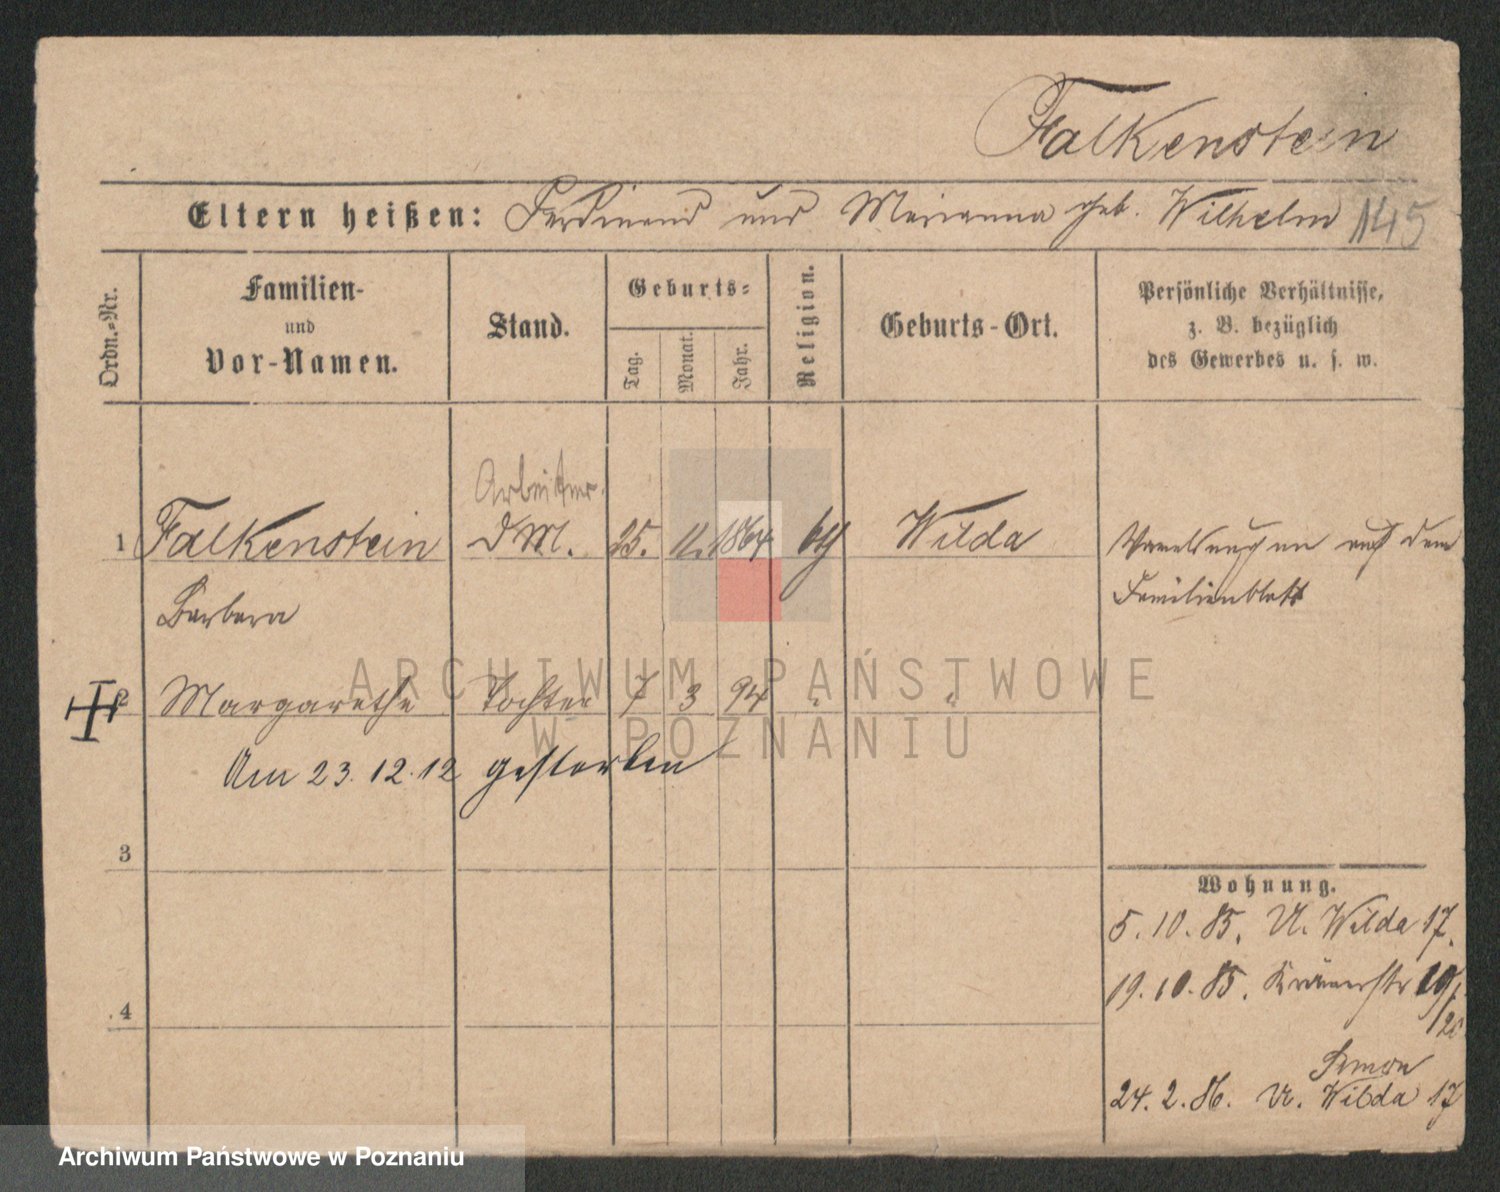 Falkenstein
Eltern heißen: Ferdinand und Marianna geb. Wilhelm 145
Ordn.-Nr.
Familien-
und
Vor-Namen.
Stand.
Geburts-
Tag.
Monat.
Jahr.
Religion.
Geburts-Ort.
Persönliche Verhältnisse,
z. B. bezüglich
des Gewerbes u. s. w.
Arbeiter
1 Falkenstein D.M. 25. 11. 1864 kth Wilda auf dem
Barbara Familienblatt
2 Margarethe Tochter 7 3 94 " "
Am 23.12.12 gestorben
3
Wohnung.
5.10.85. U. Wilda 17.
19.10.85. Krämerstr 19/
20
4
Simon
24.2.86. U. Wilda 17
ARCHIWUM PAŃSTWOWE
W POZNANIU
Archiwum Państwowe w Poznaniu